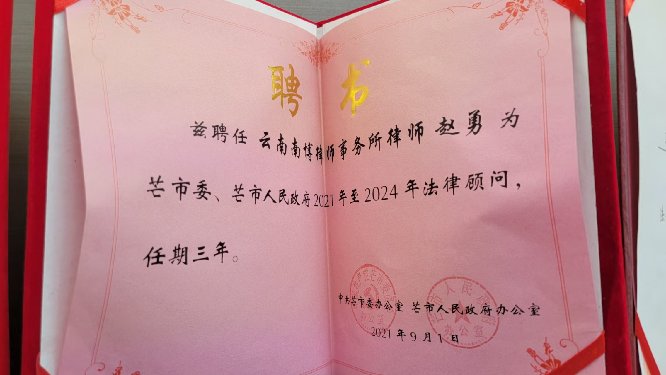 聘书
兹聘任 云南南博律师事务所律师 赵勇 为
芒市委、芒市人民政府 2021 年至 2024 年法律顾问，
任期三年。
中共芒市委办公室 芒市人民政府办公室
2021 年 9 月 1 日